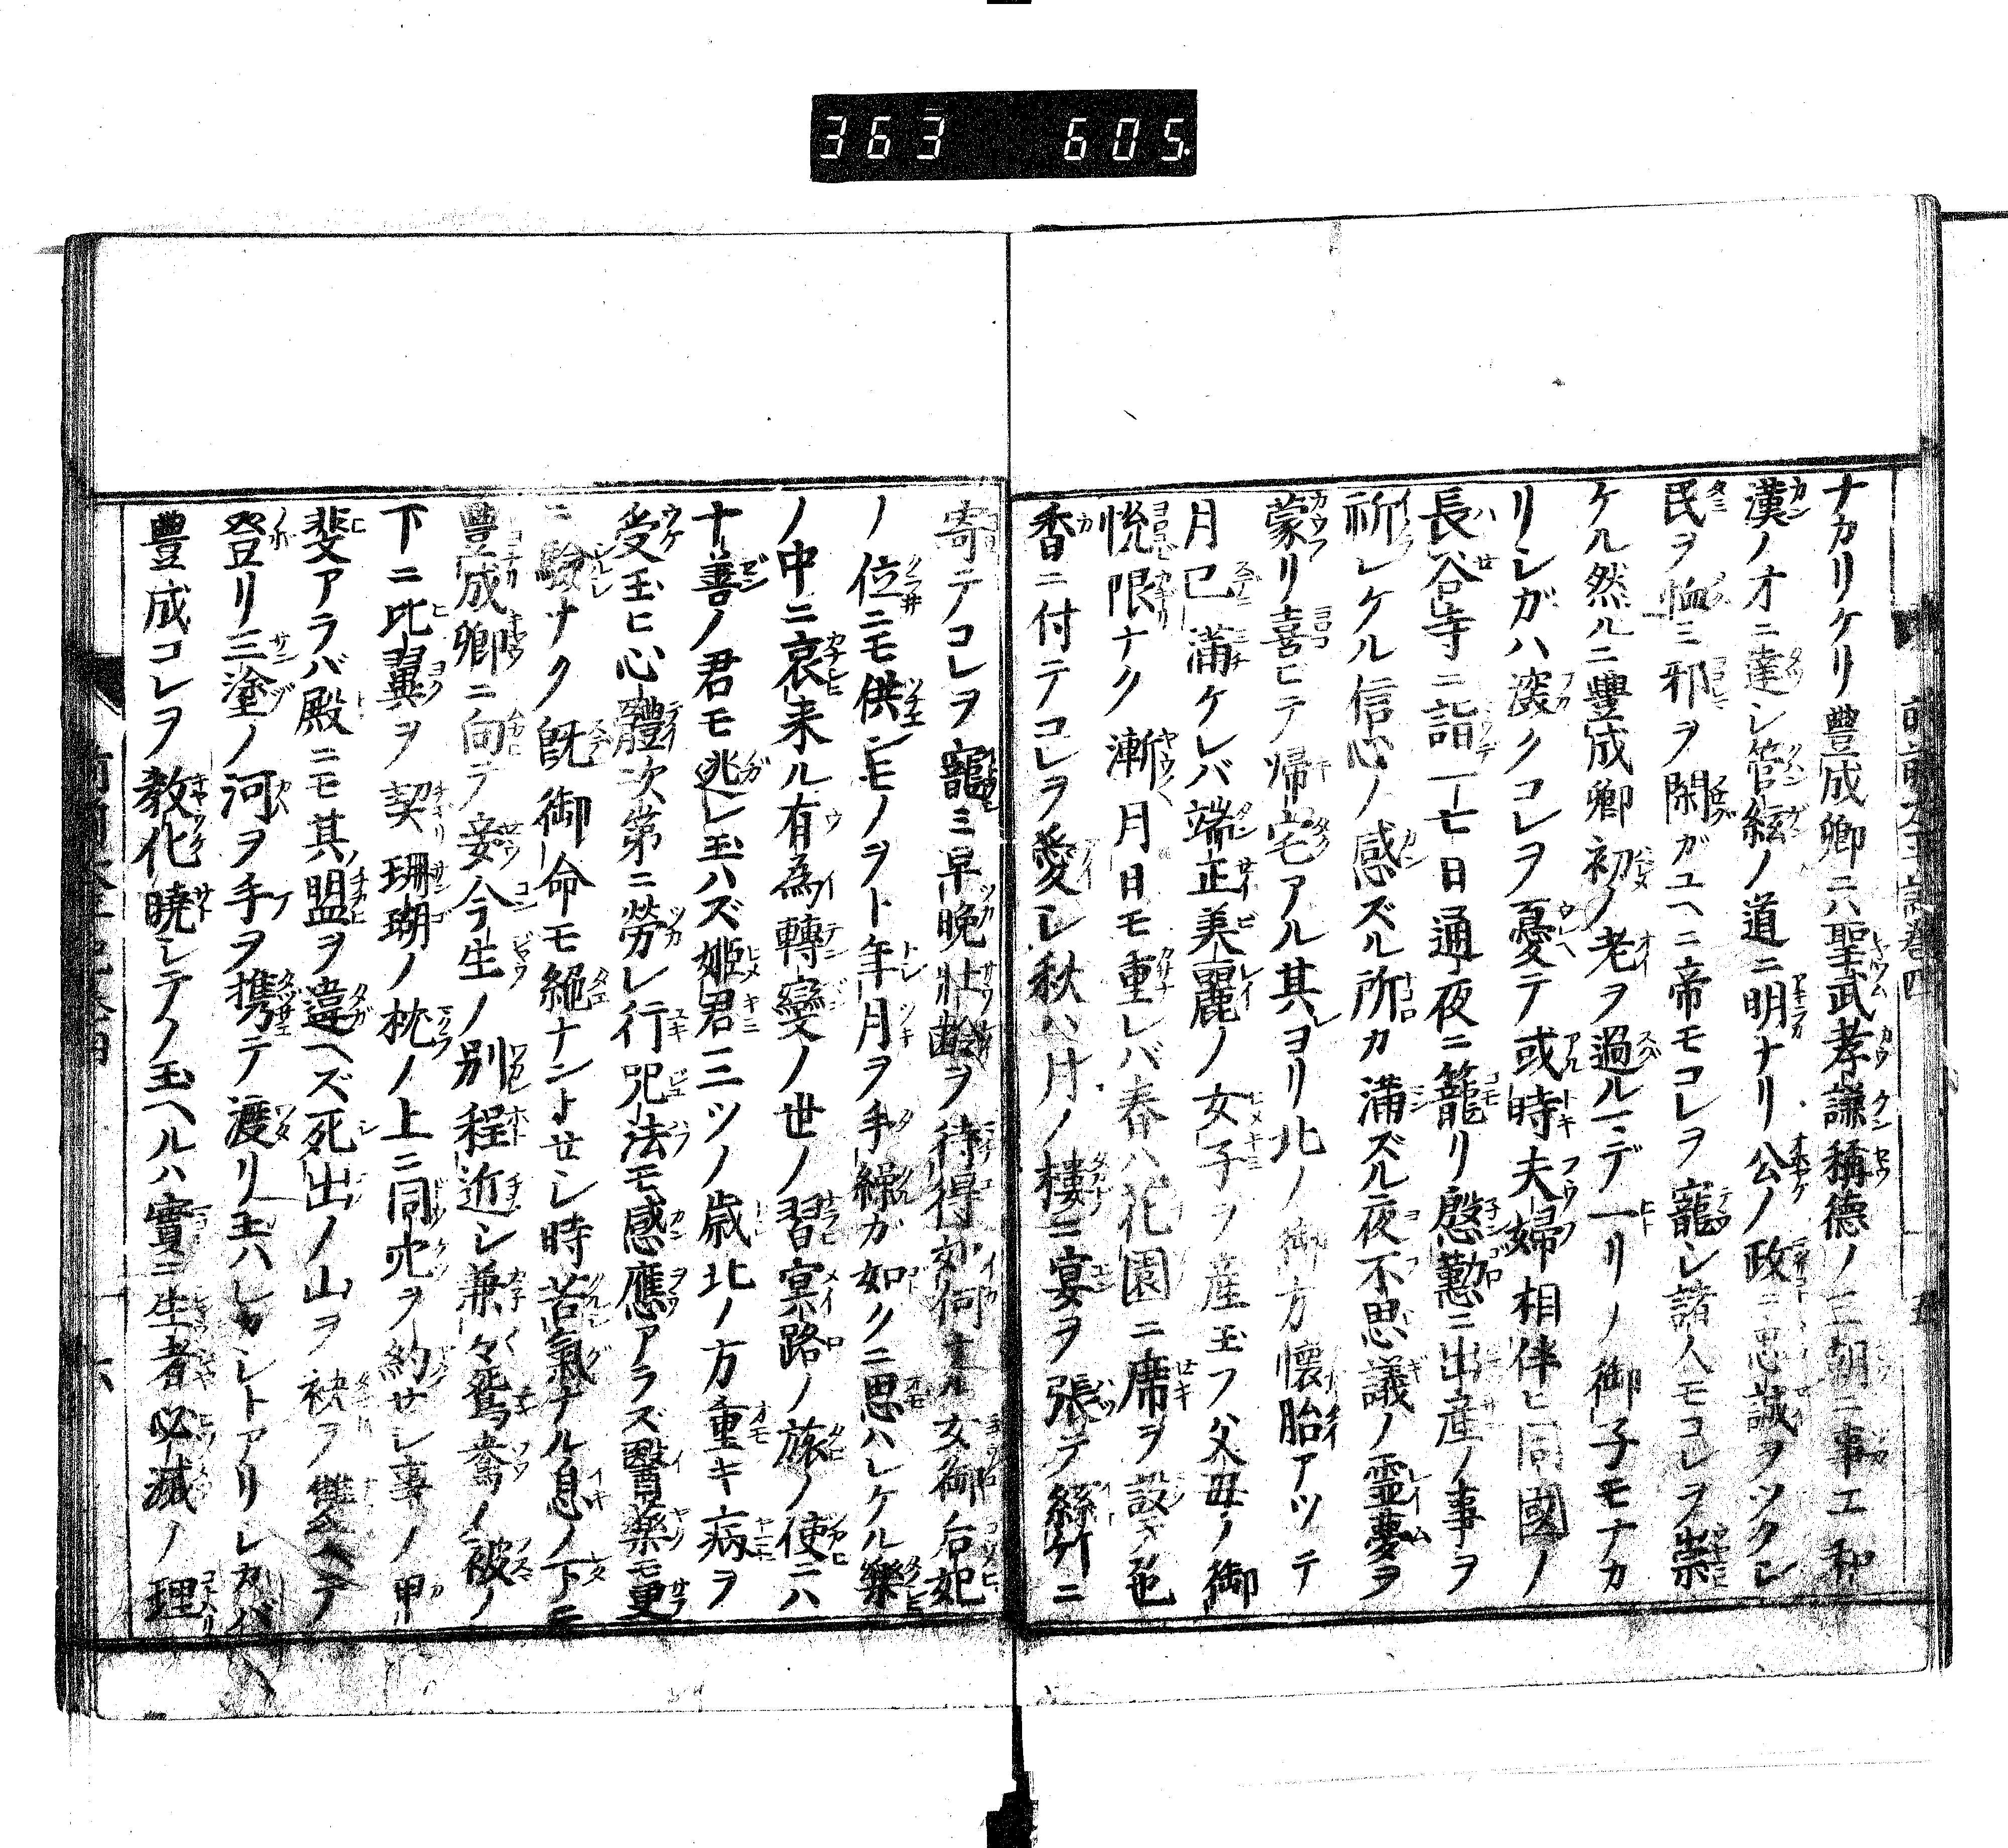 363 605
ナカリケリ豊成卿ニハ聖武孝謙稱德ノ三朝ニ事エ和
漢ノオニ達シ管絃ノ道ニ明ナリ公ノ政ニ忠誠ヲツクシ
民ヲ恤ミ邪ヲ閑ガユヘニ帝モコレヲ寵シ諸人モコレヲ崇
ケル然ルニ豊成卿初ノ老ヲ過ルマデ一リノ御子モナカ
リシガハ深クコレヲ憂テ或時夫婦相伴ヒ同國ノ
長谷寺ニ詣一七日通夜ニ籠リ慇懃ニ出産ノ事ヲ
祈レケル信心ノ感ズル所カ滿ズル夜不思議ノ霊夢ヲ
蒙リ喜ビテ帰宅アル其レヨリ北ノ御方懐胎アツテ
月已滿ケレバ端正美麗ノ女子ヲ産玉フ父母ノ御
悦限ナク漸月日モ重レバ春ハ花園ニ席ヲ設テ色
香ニ付テコレヲ愛シ秋ハ月ノ樓ニ宴ヲ張テ絲竹ニ
寄テコレヲ寵ミ早晩壮齢ヲ待得如何ナル女御后妃
ノ位ニモ供シモノヲト年月ヲ手繰ガ如クニ思ハレケル樂
ノ中ニ哀来ル有為轉變ノ世ノ習冥路ノ旅ノ使ニハ
十善ノ君モ逃レ玉ハズ姫君三ツノ歳北ノ方重キ病ヲ
受玉ヒ心體次第ニ勞レ行咒法モ感應アラズ醫薬モ更
ニ驗ナク既御命モ絶ナントセシ時苦氣ナル息ノ下ニ
豊成卿ニ向テ妾今生ノ別程近シ兼々鴛鴦ノ被ノ
下ニ比翼ヲ契珊瑚ノ枕ノ上ニ同穴ヲ約セシ事ノ甲
斐アラバ殿ニモ其盟ヲ違ヘズ死出ノ山ヲ袂ヲ雙ヘテ
登リ三塗ノ河ヲ手ヲ携テ渡リ玉ハレカシトアリシカバ
豊成コレヲ教化曉シテノ玉ヘルハ實ニ生者必滅ノ理